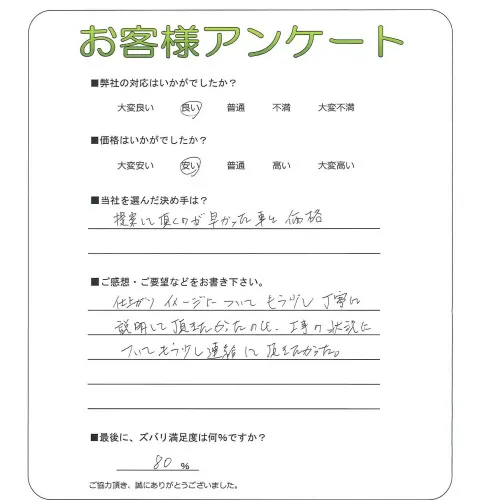 お客様アンケート
■弊社の対応はいかがでしたか？
大変良い 良い 普通 不満 大変不満
■価格はいかがでしたか？
大変安い 安い 普通 高い 大変高い
■当社を選んだ決め手は？
提案して頂くのが早かった事と価格
■ご感想・ご要望などをお書き下さい。
仕上がりイメージについてもう少し丁寧に
説明して頂きたかったのと、工事の状況に
ついてもう少し連絡して頂きたかった。
■最後に、ズバリ満足度は何%ですか？
80 %
ご協力頂き、誠にありがとうございました。